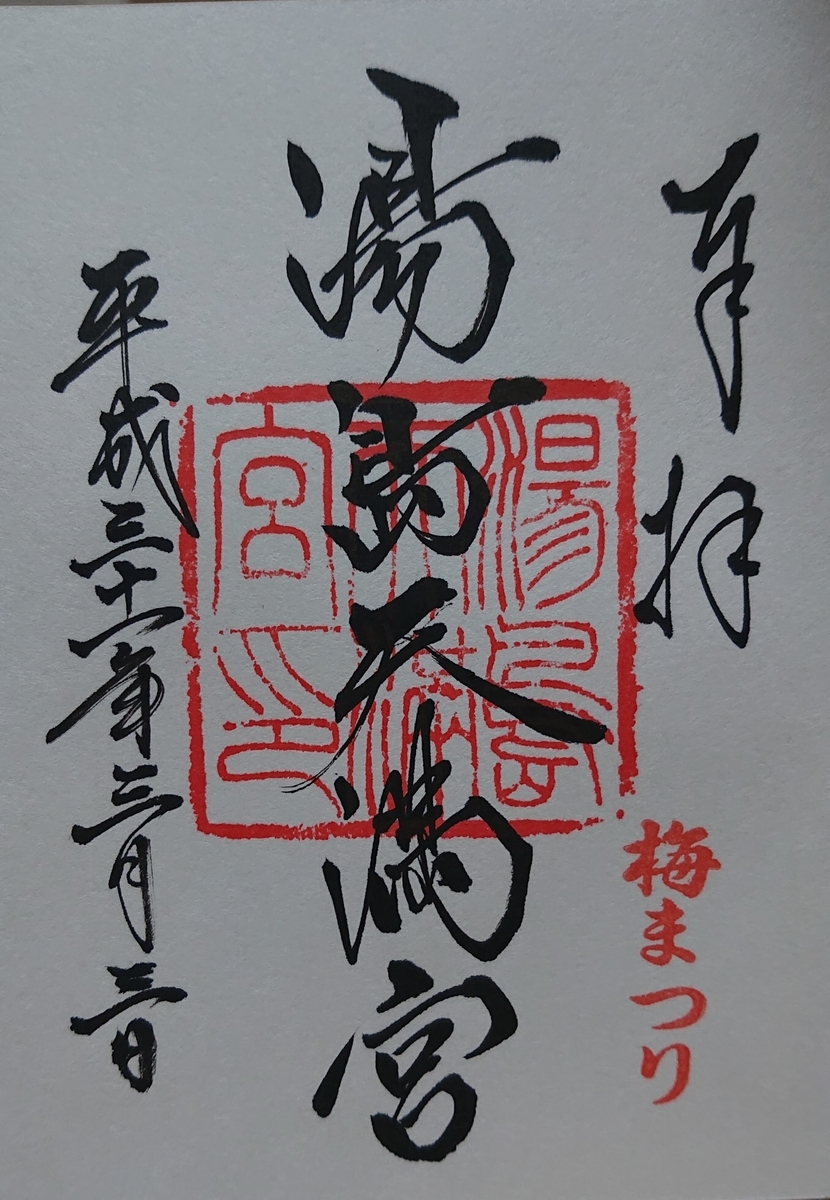 奉拝
梅まつり
湯島天満宮
湯島天満宮印
平成三十一年三月三日